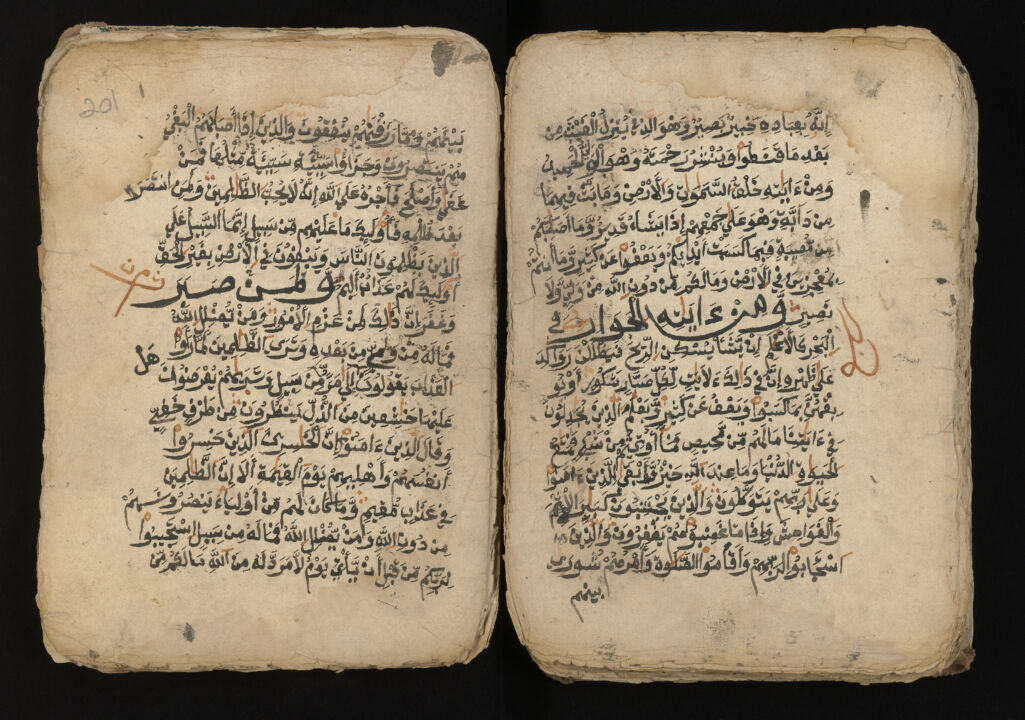 إنه بعباده خبير بصير وهو الذي ينزل الغيث من
بعد ما قنطوا وينشر رحمته وهو الولي الحميد
ومن ءايته خلق السموت والأرض وما بث فيهما
من دابة وهو على جمعهم إذا يشاء قدير وما أصبكم
من مصيبة فبما كسبت أيديكم ويعفوا عن كثير وما أنتم
بمعجزين في الأرض وما لكم من دون الله من ولي ولا
نصير ومن ءايته الجوار في
البحر كالأعلم إن يشأ يسكن الريح فيظللن رواكد
على ظهره إن في ذلك لأيت لكل صبار شكور أو يو
بقهن بما كسبوا ويعف عن كثير ويعلم الذين يجدلون
في ءايتنا ما لهم من محيص فما أوتيتم من شيء فمتع
الحيوة الدنيا وما عند الله خير وأبقى للذين ءامنوا
وعلى ربهم يتوكلون والذين يجتنبون كبئر الإثم
والفواحش وإذا ما غضبوا هم يغفرون والذين
استجابوا لربهم وأقاموا الصلوة وأمرهم شورى
بينهم
201
بينهم ومما رزقنهم ينفقون والذين إذا أصابهم البغي
هم ينتصرون وجزاؤا سيئة سيئة مثلها فمن
عفا وأصلح فأجره على الله إنه لا يحب الظلمين ولمن انتصر
بعد ظلمه فأولئك ما عليهم من سبيل إنما السبيل على
الذين يظلمون الناس ويبغون في الأرض بغير الحق
أولئك لهم عذاب أليم ولمن صبر
وغفر إن ذلك لمن عزم الأمور ومن يضلل الله
فما له من ولي من بعده وترى الظلمين لما رأوا
العذاب يقولون هل إلى مرد من سبيل وتريهم يعرضون
عليها خشعين من الذل ينظرون من طرف خفي
وقال الذين ءامنوا إن الخسرين الذين خسروا
أنفسهم وأهليهم يوم القيمة ألا إن الظلمين
في عذاب مقيم وما كان لهم من أولياء ينصرونهم
من دون الله ومن يضلل الله فما له من سبيل استجيبوا
لربكم من قبل أن يأتي يوم لا مرد له من الله ما لكم من